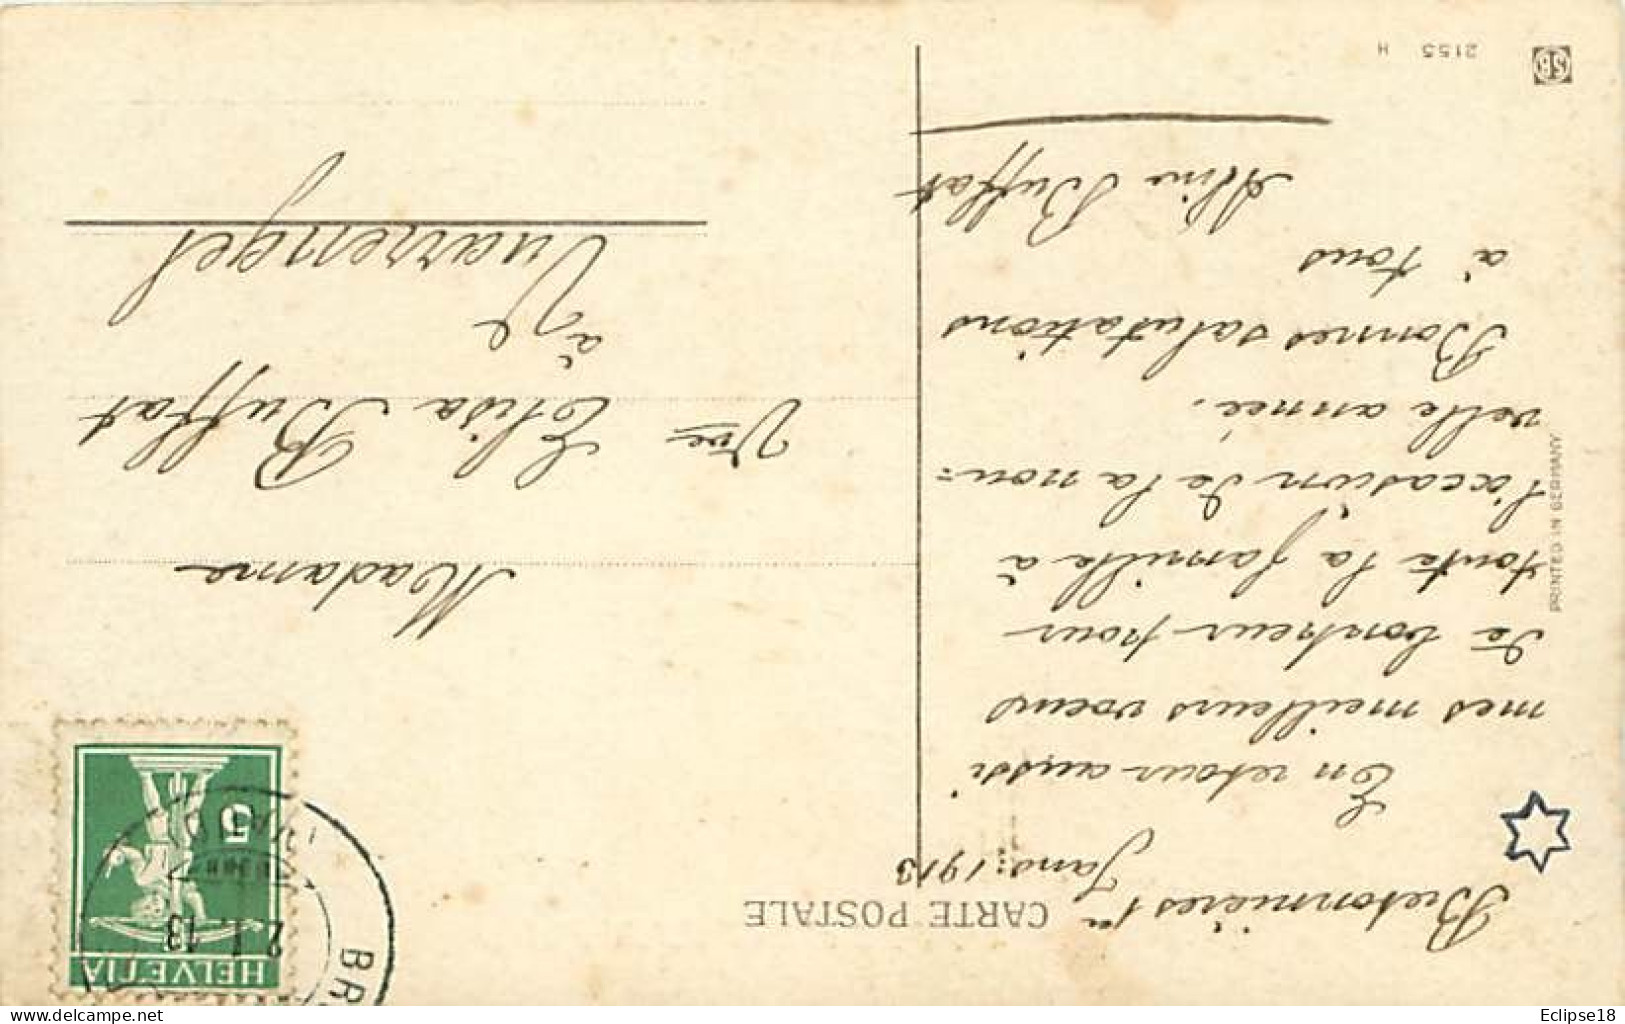 CARTE POSTALE
Bretonnières 1er
Janv: 1913
En retour aussi
mes meilleurs voeux
de bonheur pour
toute la famille à
l'occasion de la nou=
velle année.
Bonnes salutations
à tous
Aline Buffat
Madame
Vve Elisa Buffat
à
Vuarrengel
HELVETIA
5
2.I.13
BR
PRINTED IN GERMANY
2155 H
SB
Eclipse18